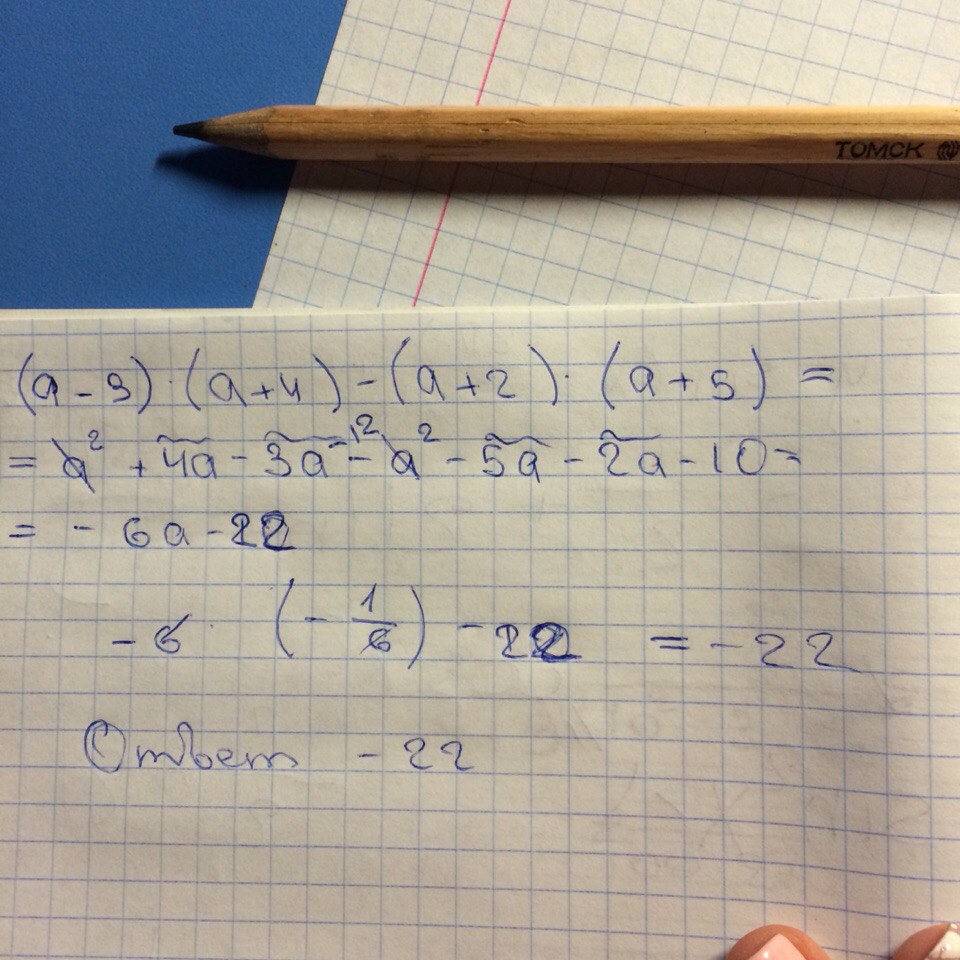 ТОМСК
(a-3)·(a+4)-(a+2)·(a+5)=
=a²+4a-3a-12-a²-5a-2a-10=
=-6a-22
-6·(-1/6)-22=-22
Ответ -22